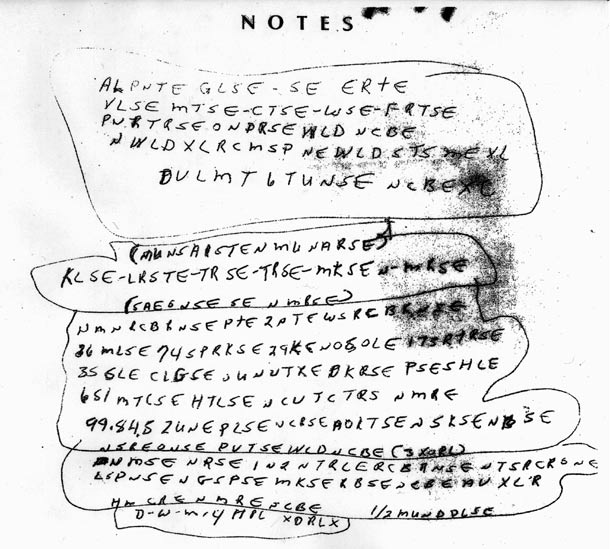 NOTES
ALPNTE GLSE-SE ERTE
VLSE MTSE-CTSE-WSE-FRTSE
PNRTRSEONDRSEWLD NCBE
NWLDXLRCMSP NEWLDSTS MEXL
DULMT6TUNSE NCBEXC
(MUNSAISTENMUNARSE)
KLSE-LRSTE-TRSE-TRSE-MKSEN-MRSE
(SAEGNSE SE NMRSE)
NMNRCBRNSEPTE2PTEWSRCBRNSE
36MLSE74SPRKSE29KENOSOLE173RTRSE
35GLE CLGSE UNUTKEDKRSE PSESHLE
651MTCSE HTLSE NCUTCTRS NMRE
99.84.52UNEPLSENCRSEAOLTSENSKSENBSE
NSREONSE PVTSEWLDNCBE (3XORL)
NMSE NRSE IN2NTRLERCBRNSENTSRCRONE
LSPNSENGSPSE MKSERBSENCBEAUXLR
HMCRENMREPCBE 1/2MUNDDLSE
D-W-M-Y MPL XDRLX